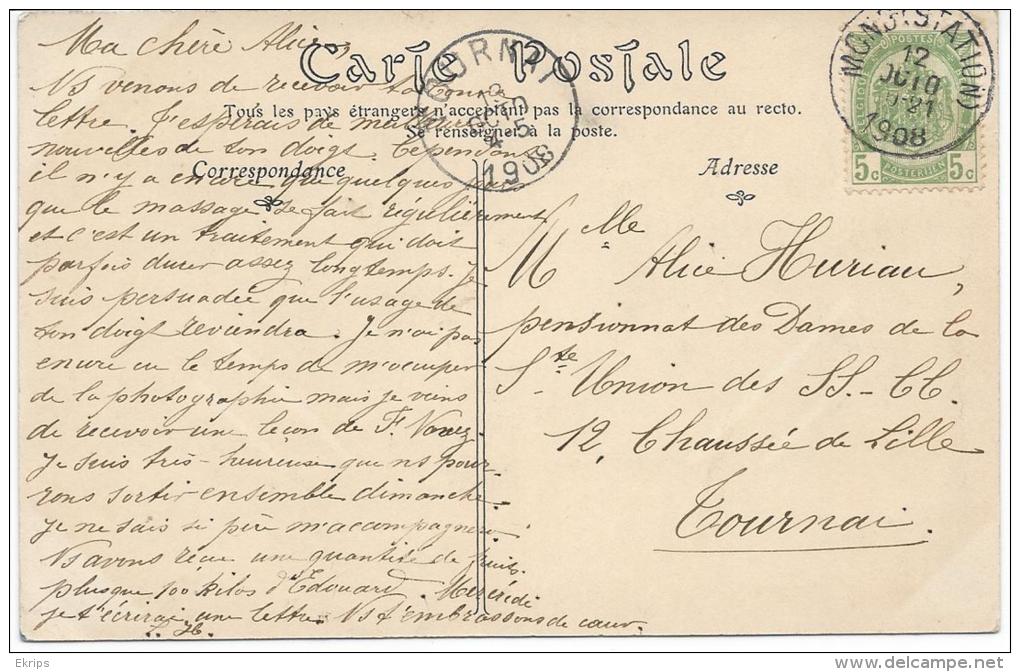 Carte Postale
Tous les pays étrangers n'acceptent pas la correspondance au recto.
Se renseigner à la poste.
Correspondance
Adresse
Ma chère Alice,
Ns venons de recevoir ta
lettre. J'espérais de meilleures
nouvelles de ton doigt. Cependant
il n'y a encore que quelques
que le massage se fait régulièrement
et c'est un traitement qui doit
parfois durer assez longtemps. Je
suis persuadée que l'usage de
ton doigt reviendra. Je n'ai pas
encore eu le temps de m'occuper
de la photographie mais je viens
de recevoir une leçon de F.
Je suis très-heureuse que ns pour-
rons sortir ensemble dimanche.
Je ne sais si père m'accompagnera.
Ns avons reçu une quantité de fruits.
plus que 100 kilos d'Edouard. Mercredi
je t'écrirai une lettre. Ns t'embrassons de cœur.
Mlle Alice Huriau,
pensionnat des Dames de la
Ste Union des SS.-CC.
12, Chaussée de Lille
Tournai.
TOURNAI
1908
MONS (STATION)
12
1908
POSTES
5c 5c
POSTERIJEN
Ekrips
delcampe.net